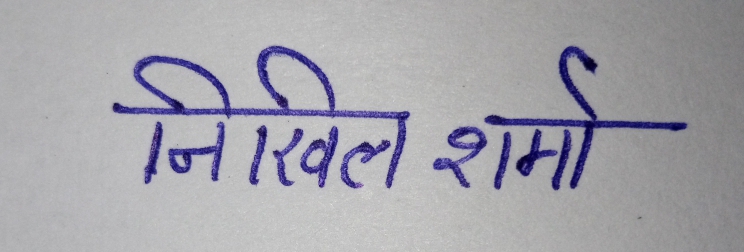 निखिल शर्मा